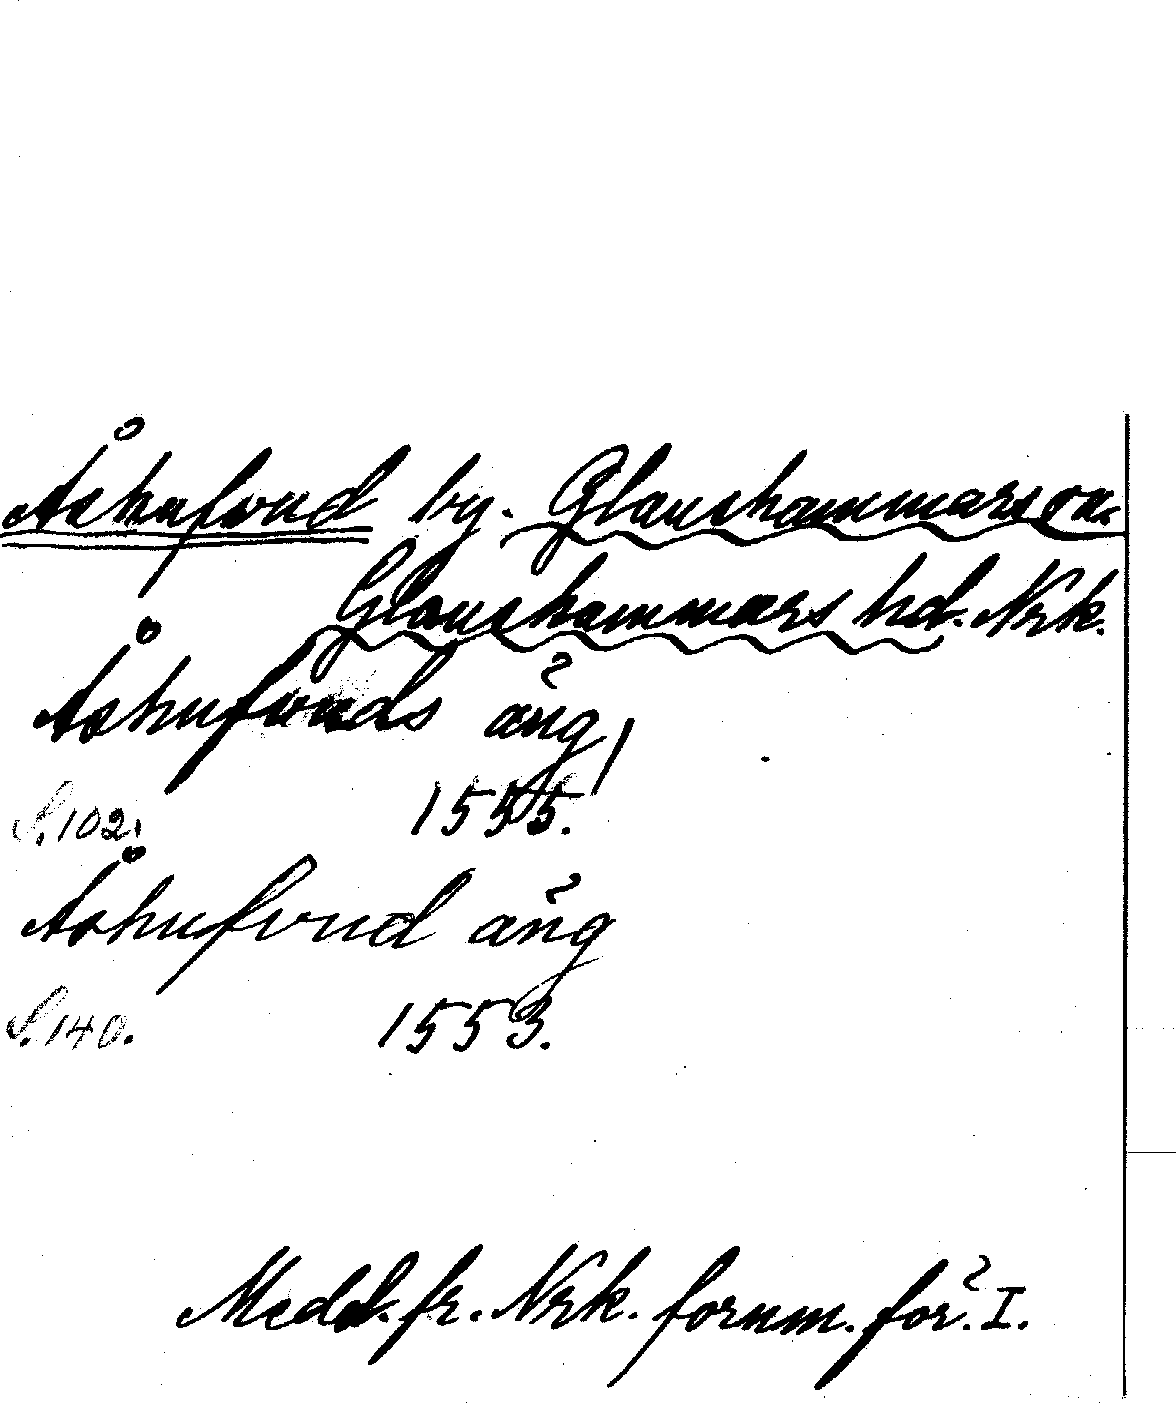 Åshufvud by. Glanshammars sn.
Glanshammars hd. Nrk.
Åshufvuds äng,
S. 102. 1555.
Åshufvud äng
S. 140. 1553.
Medd. fr. Nrk. fornm. för. I.